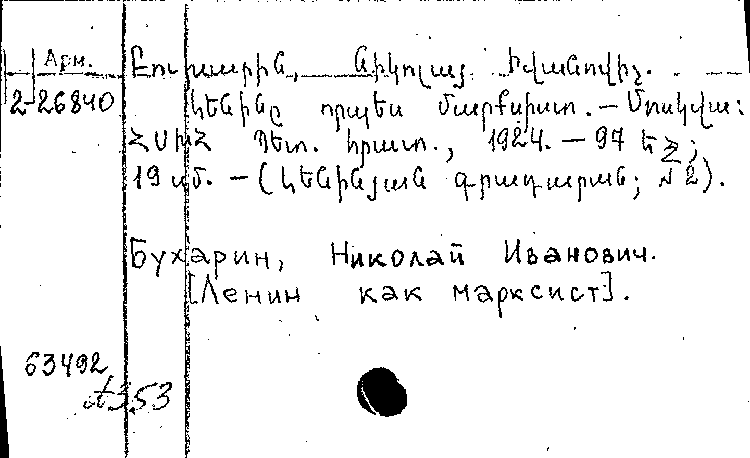 Арм.
Բուխարին, Նիկոլայ Իվանովիչ.
2-26840
Լենինը որպես մարքսիստ. – Մոսկվա:
ՀՍԽՀ Պետ. հրատ., 1924. – 97 եջ;
19 սմ. – (Լենինյան գրադարան; №2).
Бухарин, Николай Иванович.
[Ленин как марксист].
63492
A353